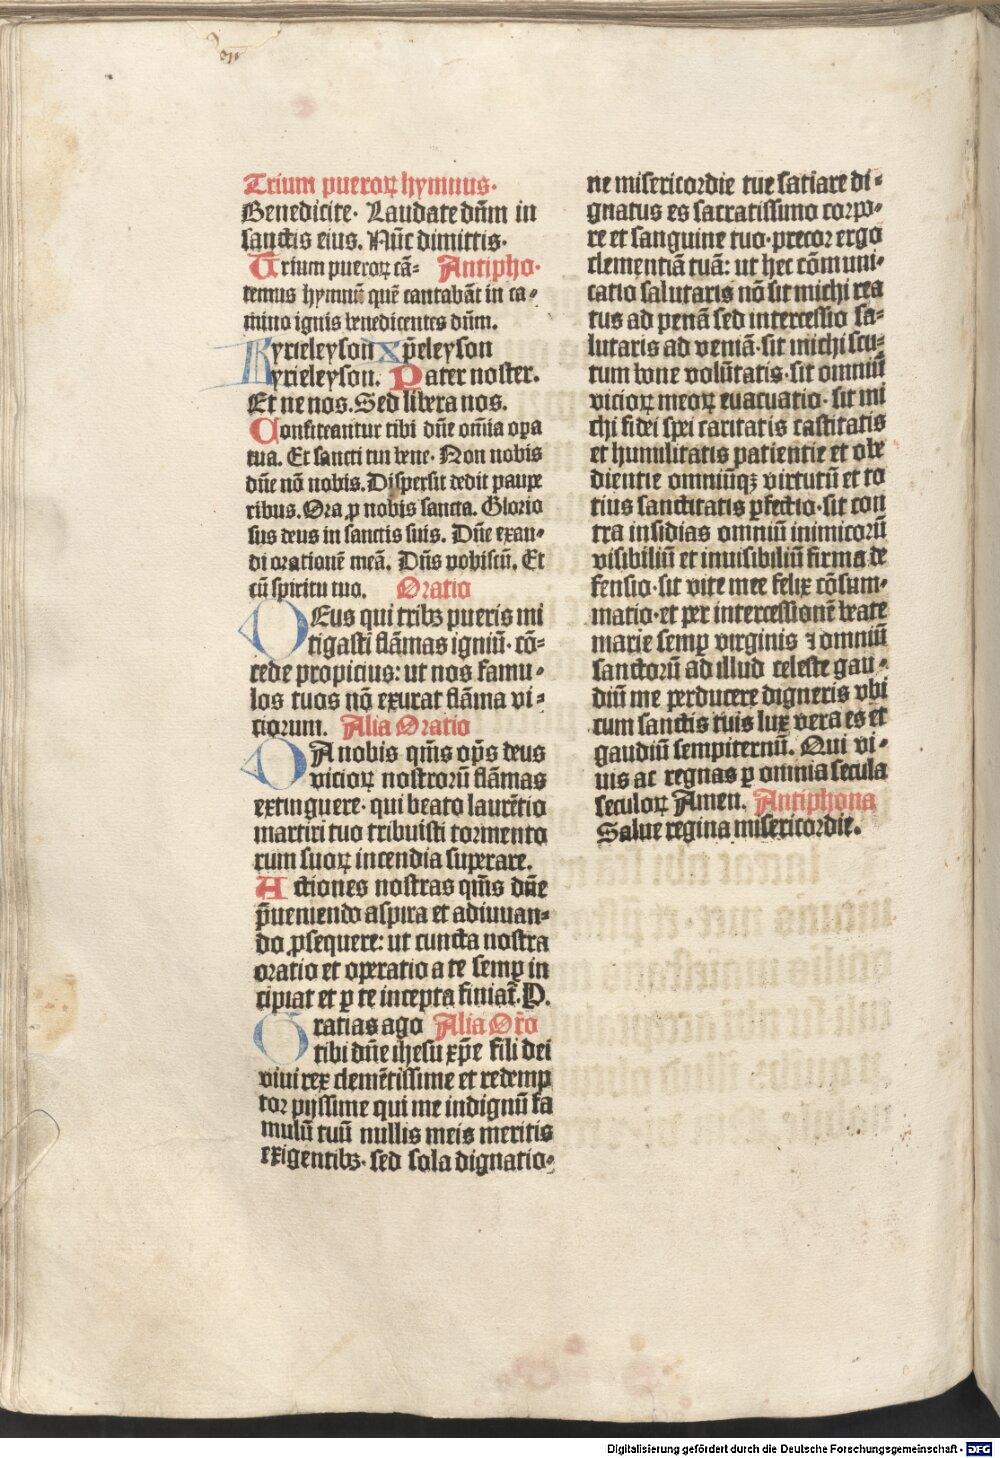 Trium pueroꝝ hymnus.
Benedicite. Laudate dn̄m in
sanctis eius. Nūc dimittis.
Trium pueroꝝ cā= Antipho.
temus hymnū quē cantabāt in ca=
mino ignis benedicentes dn̄m.
Kyrieleyson Xp̄eleyson
kyrieleyson. Pater noster.
Et ne nos. Sed libera nos.
Confiteantur tibi dn̄e om̄ia oꝑa
tua. Et sancti tui bene. Non nobis
dn̄e nō nobis. Dispersit dedit paupe
ribus. Ora ꝑ nobis sancta. Glorio
sus deus in sanctis suis. Dn̄e exau=
di orationē meā. Dn̄s vobiscū. Et
cū spiritu tuo. Oratio
DEus qui tribꝫ pueris mi
tigasti flāmas igniū. cō=
cede propicius: ut nos famu=
los tuos nō exurat flāma vi=
ciorum. Alia Oratio
DA nobis qm̄s op̄s deus
vicioꝝ nostrorū flāmas
extinguere. qui beato laurētio
martiri tuo tribuisti tormento
rum suoꝝ incendia superare.
Actiones nostras qm̄s dn̄e
p̄ueniendo aspira et adiuuan=
do ꝓsequere: ut cuncta nostra
oratio et operatio a te semꝑ in
cipiat et ꝑ te incepta finiat̄. P.
Gratias ago Alia Or̄o
tibi dn̄e ihesu xp̄e fili dei
viui rex clemētissime et redemp
tor pijssime qui me indignū fa
mulū tuū nullis meis meritis
exigentibꝫ. sed sola dignatio=
ne misericordie tue satiare di=
gnatus es sacratissimo corpo=
re et sanguine tuo. precor ergo
clementiā tuā: ut hec cōmuni=
catio salutaris nō sit michi rea
tus ad penā sed intercessio sa=
lutaris ad veniā. sit michi scu=
tum bone volūtatis. sit omniū
vicioꝝ meoꝝ euacuatio. sit mi
chi fidei spei caritatis castitatis
et humilitatis patientie et obe
dientie omniūqꝫ virtutū et to
tius sanctitatis ꝑfectio. sit con
tra insidias omniū inimicorū
visibiliū et inuisibiliū firma de
fensio. sit vite mee felix cōsum=
matio. et per intercessionē beate
marie semꝑ virginis ⁊ omniū
sanctorū ad illud celeste gau=
diū me perducere digneris vbi
cum sanctis tuis lux vera es et
gaudiū sempiternū. Qui vi=
uis ac regnas ꝑ omnia secula
seculoꝝ Amen. Antiphona
Salue regina misericordie.
Digitalisierung gefördert durch die Deutsche Forschungsgemeinschaft - DFG